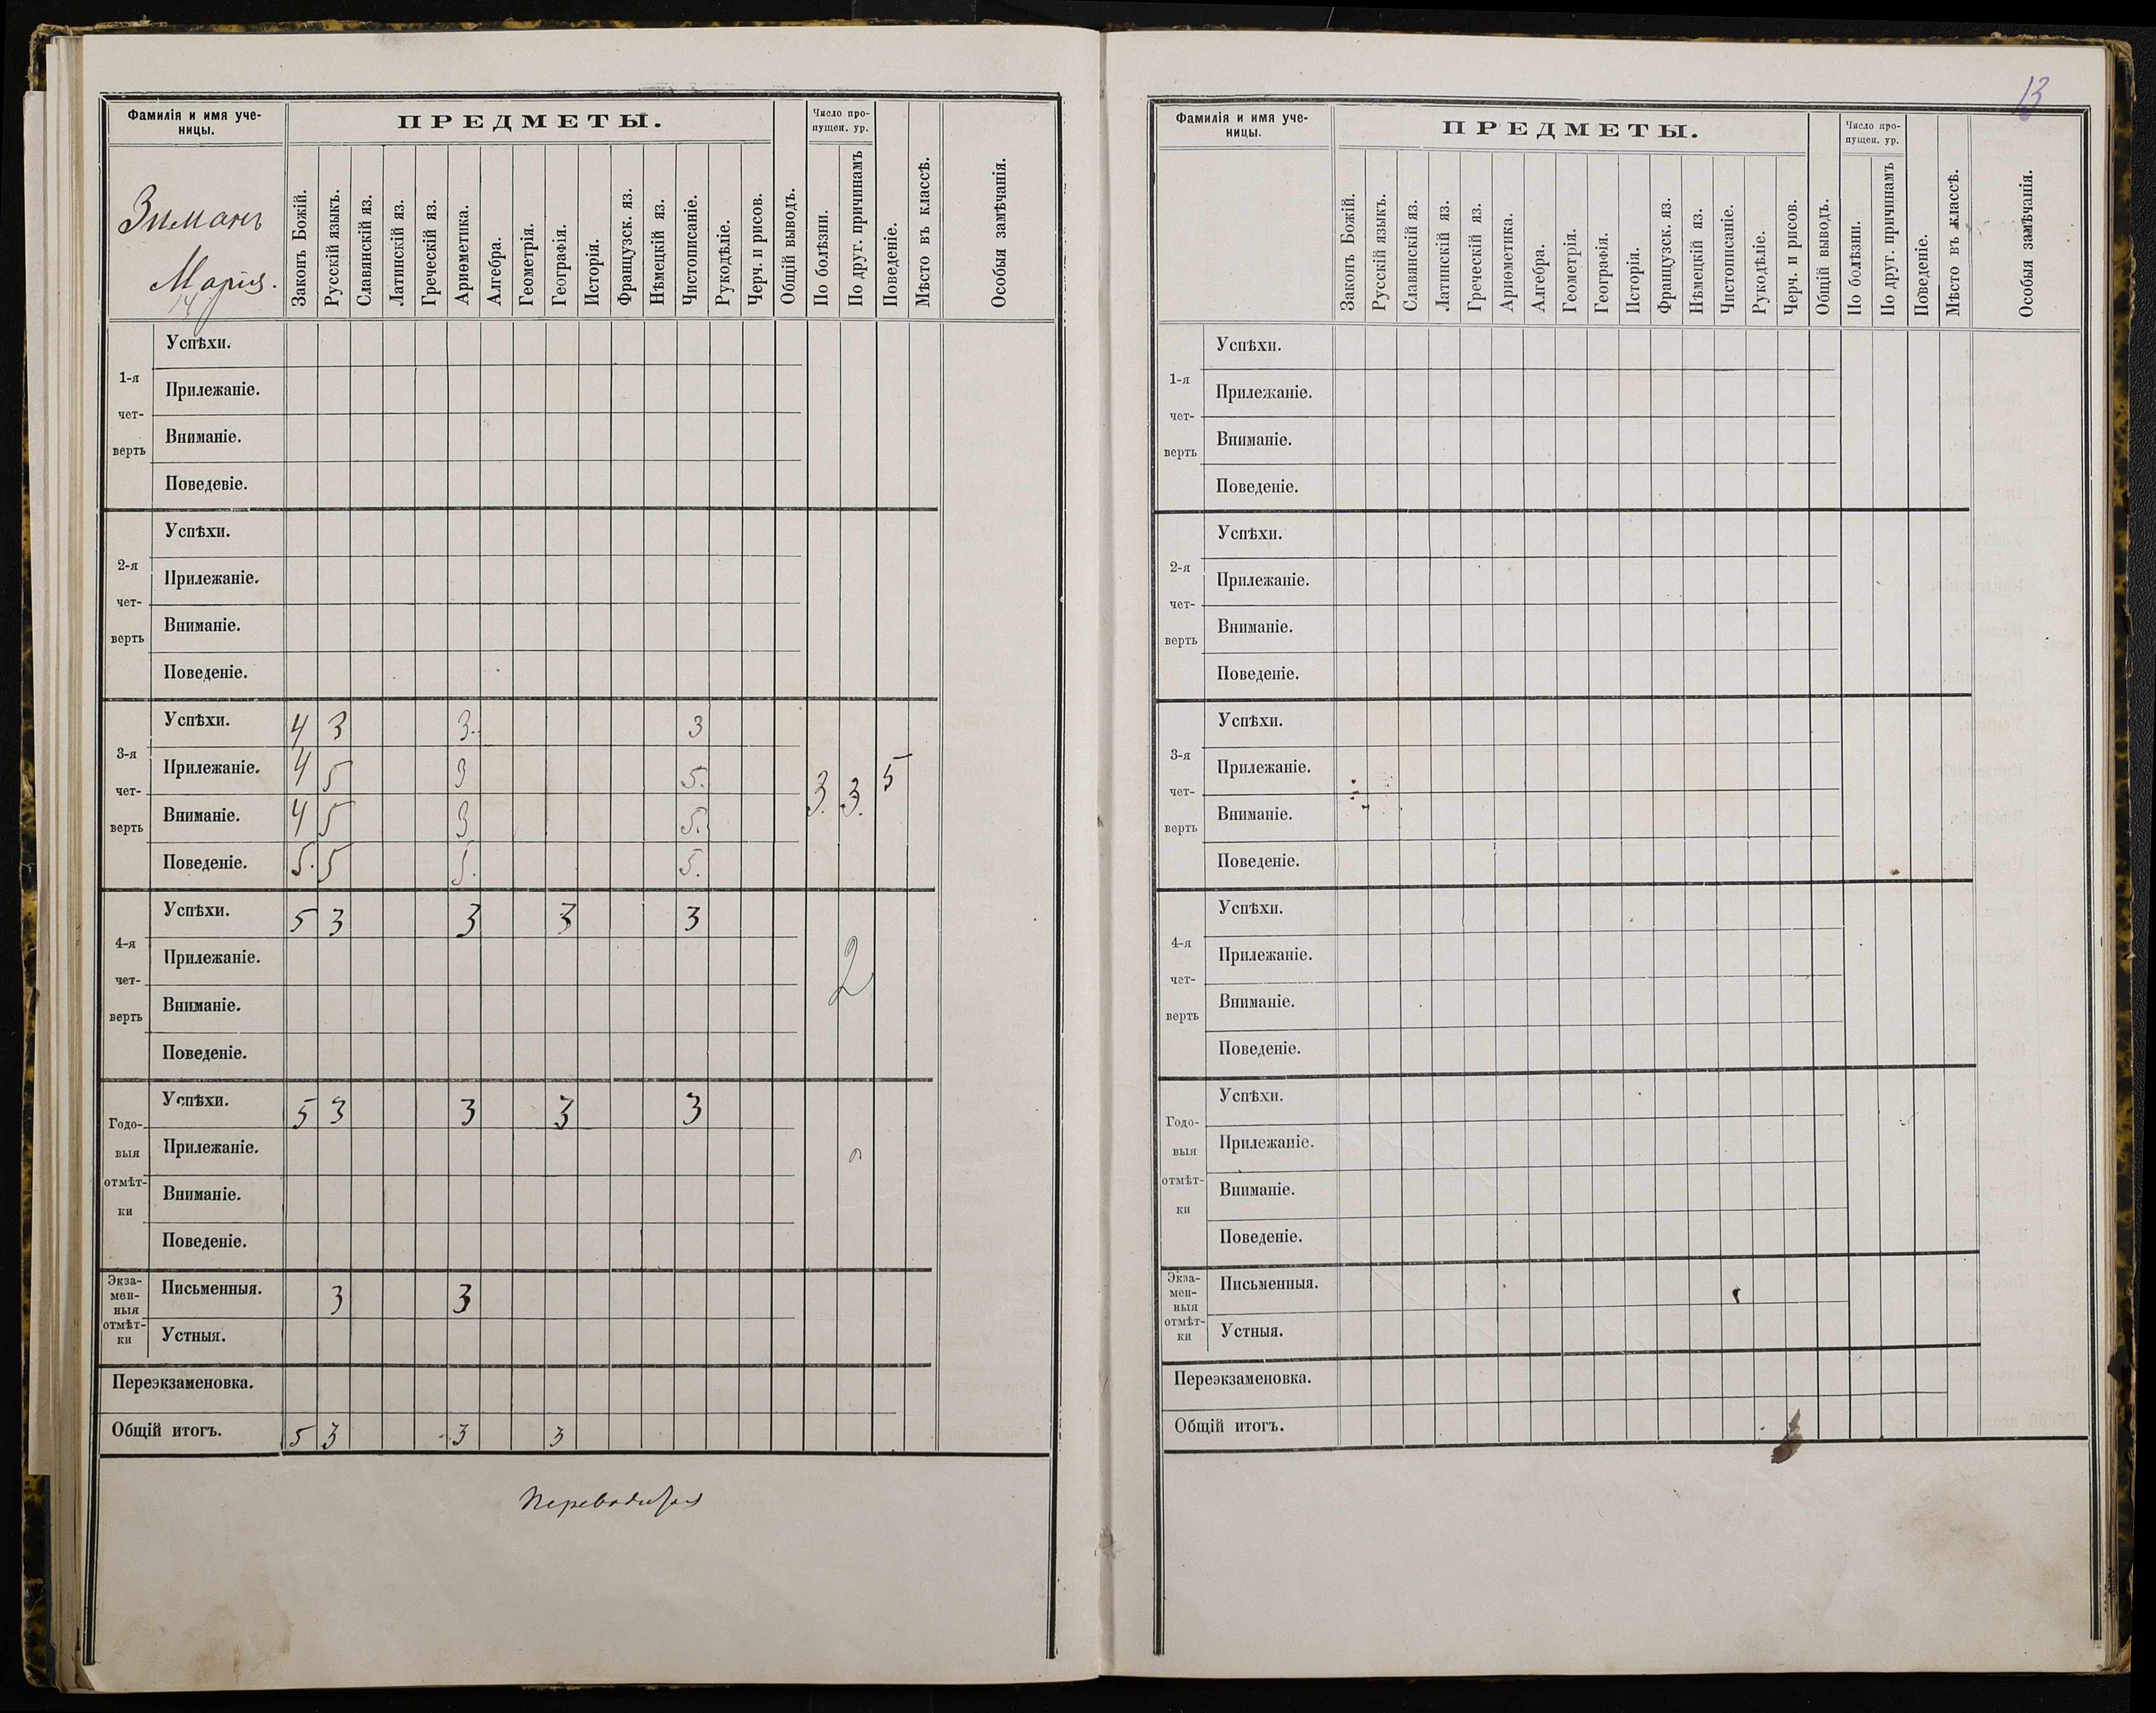 Фамилія и имя уче-
ницы.
ПРЕДМЕТЫ.
Число про-
пущен. ур.
Зиманъ
Марія.
Законъ Божій.
Русскій языкъ.
Славянскій яз.
Латинскій яз.
Греческій яз.
Ариѳметика.
Алгебра.
Геометрія.
Географія.
Исторія.
Французск. яз.
Нѣмецкій яз.
Чистописаніе.
Рукодѣліе.
Черч. и рисов.
Общій выводъ.
По болѣзни.
По друг. причинамъ
Поведеніе.
Мѣсто въ классѣ.
Особыя замѣчанія.
1-я
чет-
верть
Успѣхи.
Прилежаніе.
Вниманіе.
Поведевіе.
2-я
чет-
верть
Успѣхи.
Прилежаніе.
Вниманіе.
Поведеніе.
3-я
чет-
верть
Успѣхи. 4 3 3. 3
Прилежаніе. 4 5 3 5.
Вниманіе. 4 5 3 5.
Поведеніе. 5. 5 5. 5.
3. 3. 5
4-я
чет-
верть
Успѣхи. 5 3 3 3 3
Прилежаніе.
Вниманіе.
Поведеніе.
2
Годо-
выя
отмѣт-
ки
Успѣхи. 5 3 3 3 3
Прилежаніе.
Вниманіе.
Поведеніе.
Экза-
мен-
ныя
отмѣт-
ки
Письменныя. 3 3
Устныя.
Переэкзаменовка.
Общій итогъ. 5 3 3 3
Переводится
13
Фамилія и имя уче-
ницы.
ПРЕДМЕТЫ.
Число про-
пущен. ур.
Законъ Божій.
Русскій языкъ.
Славянскій яз.
Латинскій яз.
Греческій яз.
Ариѳметика.
Алгебра.
Геометрія.
Географія.
Исторія.
Французск. яз.
Нѣмецкій яз.
Чистописаніе.
Рукодѣліе.
Черч. и рисов.
Общій выводъ.
По болѣзни.
По друг. причинамъ
Поведеніе.
Мѣсто въ классѣ.
Особыя замѣчанія.
1-я
чет-
верть
Успѣхи.
Прилежаніе.
Вниманіе.
Поведеніе.
2-я
чет-
верть
Успѣхи.
Прилежаніе.
Вниманіе.
Поведеніе.
3-я
чет-
верть
Успѣхи.
Прилежаніе.
Вниманіе.
Поведеніе.
4-я
чет-
верть
Успѣхи.
Прилежаніе.
Вниманіе.
Поведеніе.
Годо-
выя
отмѣт-
ки
Успѣхи.
Прилежаніе.
Вниманіе.
Поведеніе.
Экза-
мен-
ныя
отмѣт-
ки
Письменныя.
Устныя.
Переэкзаменовка.
Общій итогъ.